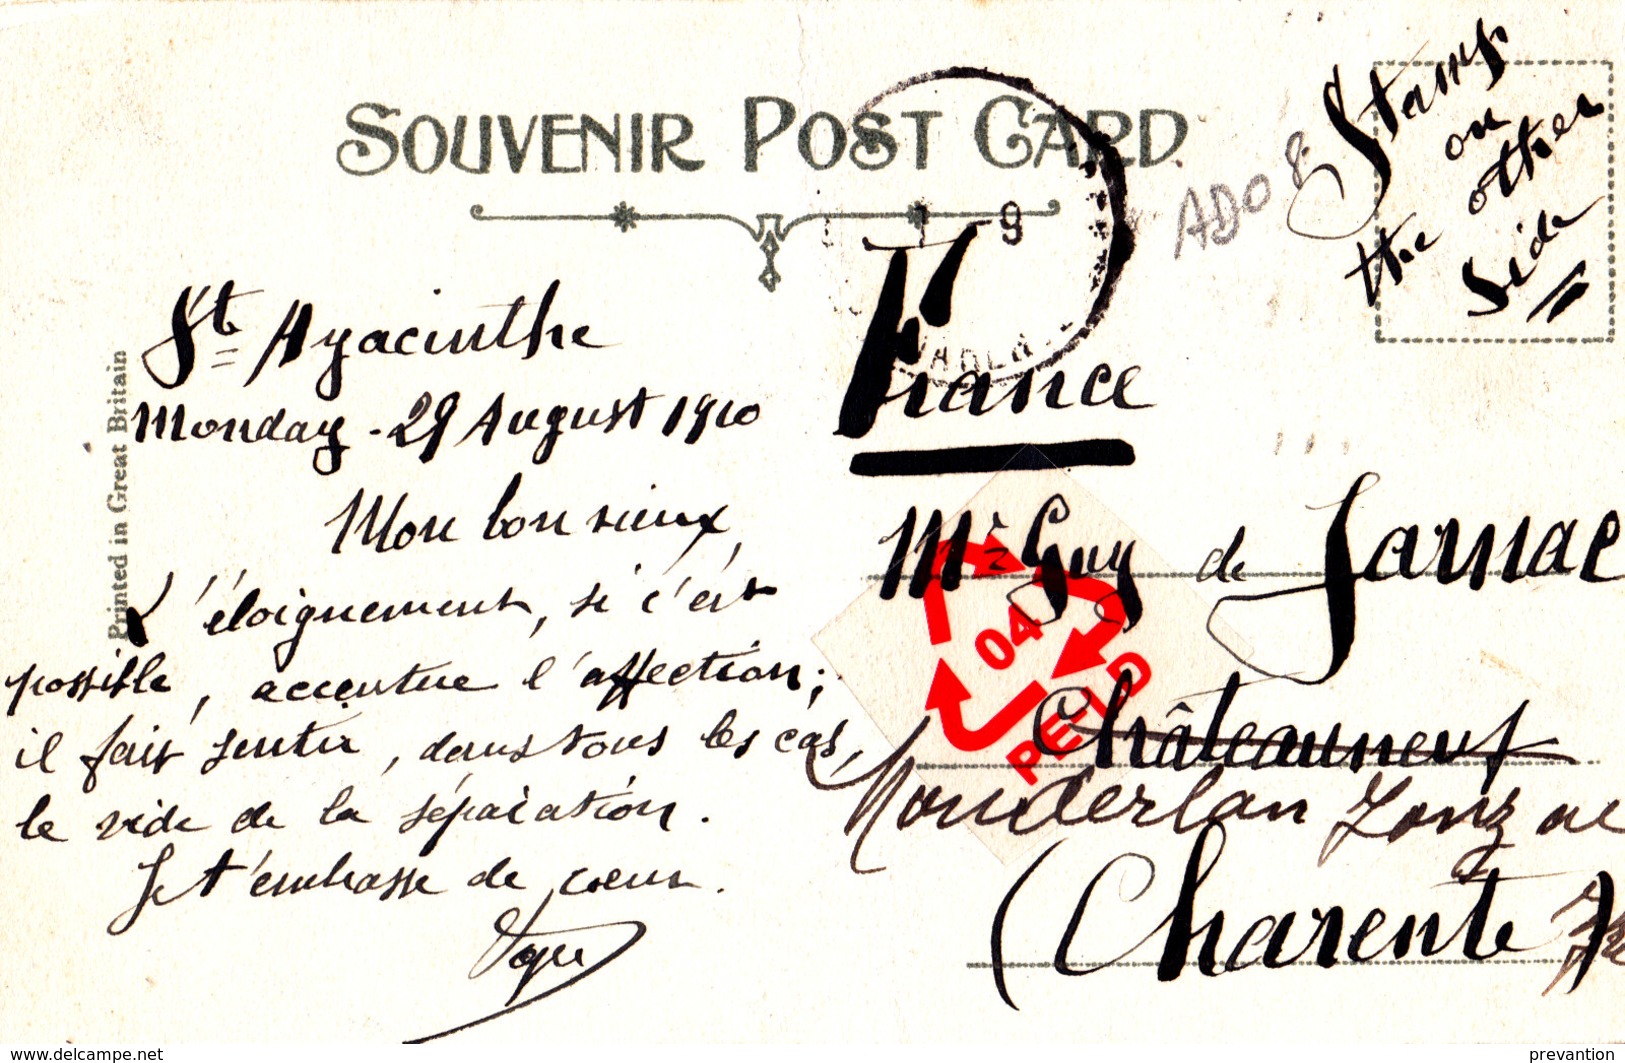 SOUVENIR POST CARD.
ADO 8
Stamp
on
the other
side
1 9
France
St Hyacinthe
Monday - 29 August 1910
Mon bon vieux,
L'éloignement, si c'est
possible, accentue l'affection;
il fait sentir, dans tous les cas,
le vide de la séparation.
Je t'embrasse de coeur.
Printed in Great Britain
Mr Guy de Jarnac
04
PELD
Châteauneuf
Jonzac
(Charente)
www.delcampe.net
prevantion